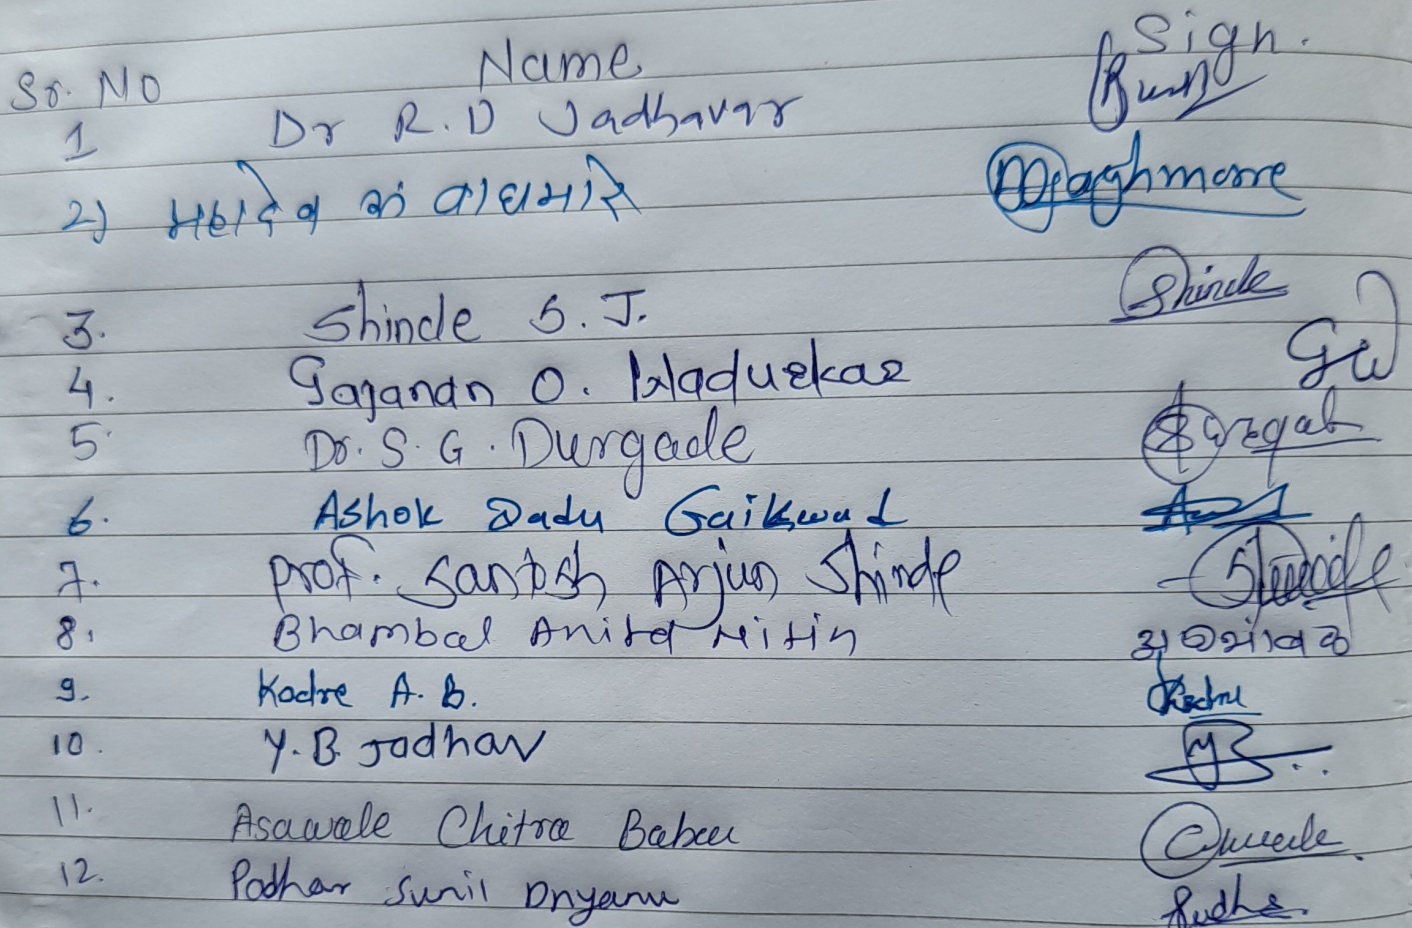 Sr. No Name Sign.
1 Dr R.D Jadhavar
2) महादेव कां वाघमारे Waghmare
3. Shinde S. J. Shinde
4. Gajanan O. Wadurkar GW
5. Dr. S. G. Durgade
6. Ashok Dadu Gaikwad
7. Prof. Santosh Arjun Shinde
8. Bhambal Anita Nitin
9. Kadre A. B. Kadre
10. Y. B. Jadhav YB
11. Asawale Chitra Babu
12. Padhar Sunil Dnyanu